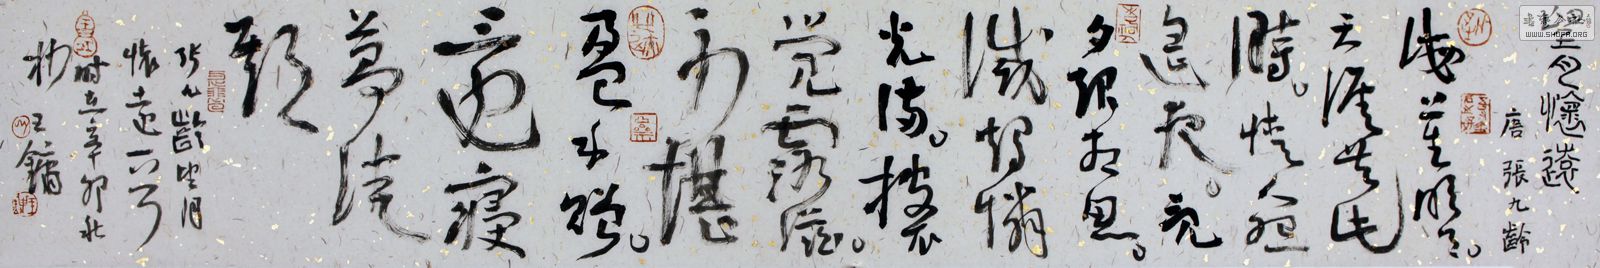 望月懷遠
唐 張九齡
海上生明月
天涯共此
時。情人怨
遙夜。竟
夕起相思。
滅燭憐
光滿。披衣
覺露滋。
不堪
盈手贈。
還寢
夢佳
期
张九齡望月
懷遠一首
时在辛卯
王鏞
WWW.SHUFA.ORG